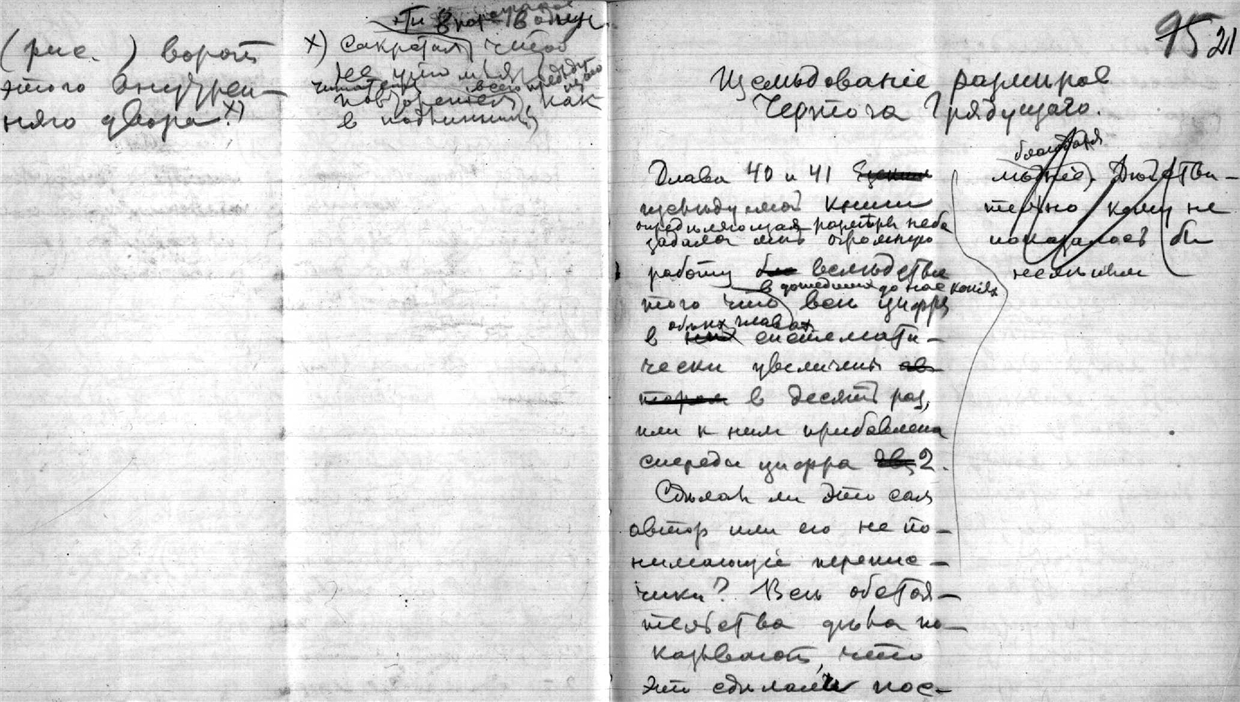 (рис. ) ворот
этого внутрен-
няго двора x)
x) Сократая, чтоб
не утомлять
читателя
повторения, как
в подлинник,
95 21
Изслѣдованіе размѣров
Чертога Грядущаго.
Глава 40 и 41
изслѣдуемой книги
опредѣляющая размѣры неба
задала мнѣ огромную
работу вслѣдствіе
того что всѣ цифры
в дошедших до нас копіях
в обѣих главах системати-
чески увеличены
в десять раз,
или к ним прибавлена
спереди цифра 2.
Сдѣлал ли это сам
автор или его не по-
нимающіе перепис-
чики? Всѣ обстоя-
тельства дѣла по-
казывают, что
это сдѣлали пос-
благодаря
Дѣйстви-
тельно кому не
показалось бы
нелѣпым